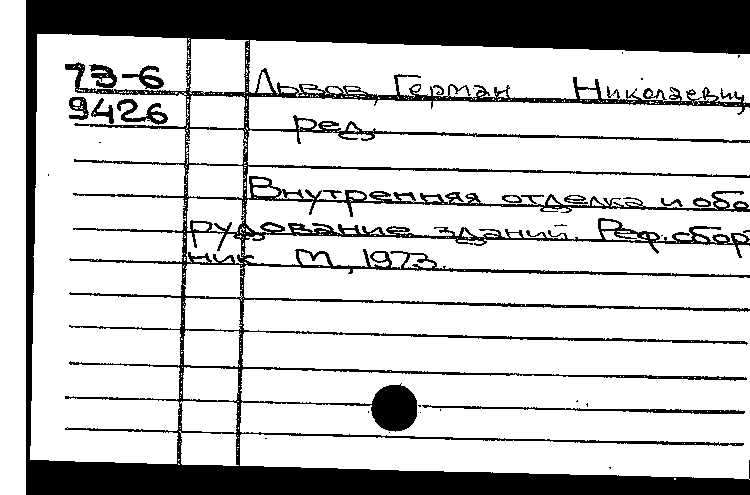 73-6
9426
Львов, Герман Николаевич
ред.
Внутренняя отделка и обо
рудование зданий. Реф. сбор
ник М., 1973.